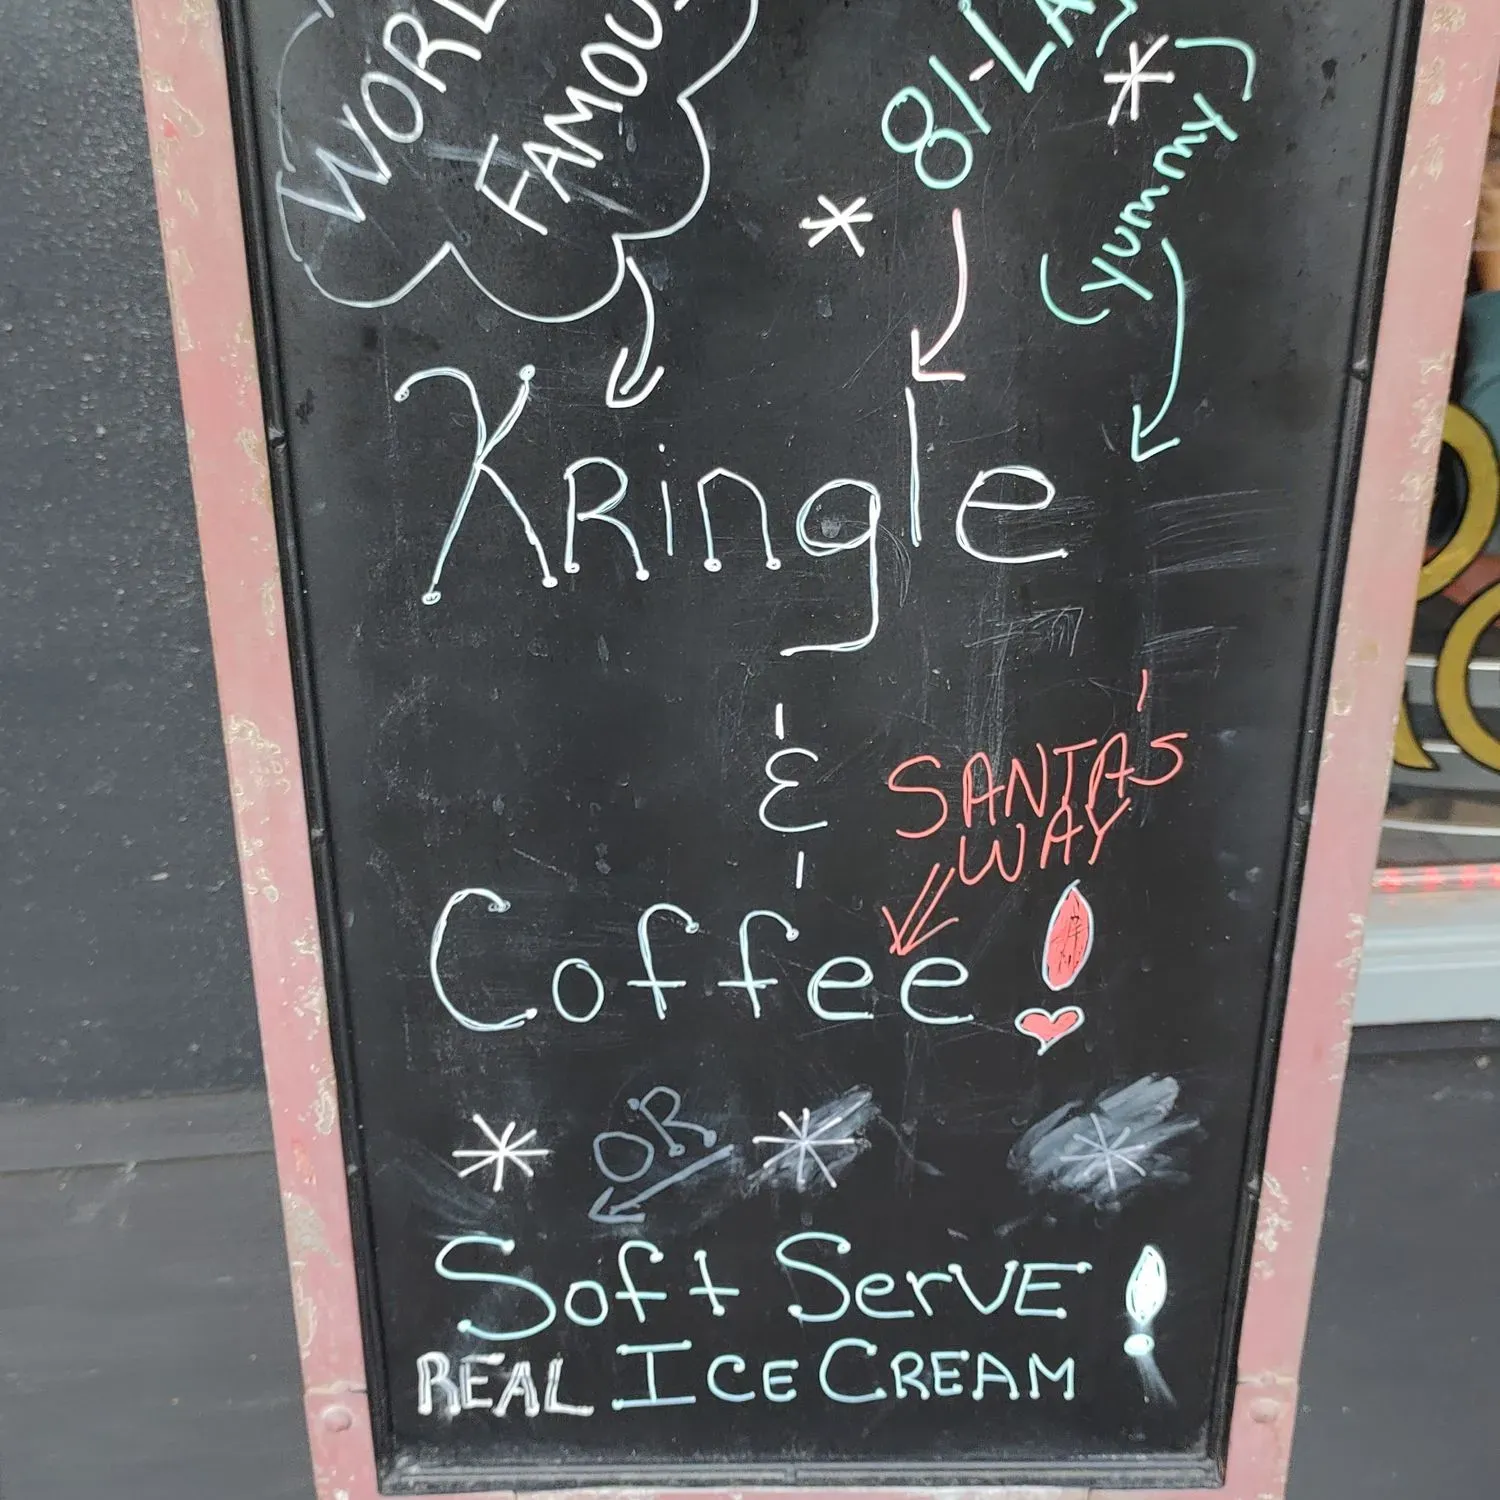 WORL
FAMOUS
81-LAY
(yummy)
Kringle
&
SANTA'S
WAY
Coffee!
OR
Soft Serve!
REAL ICE CREAM